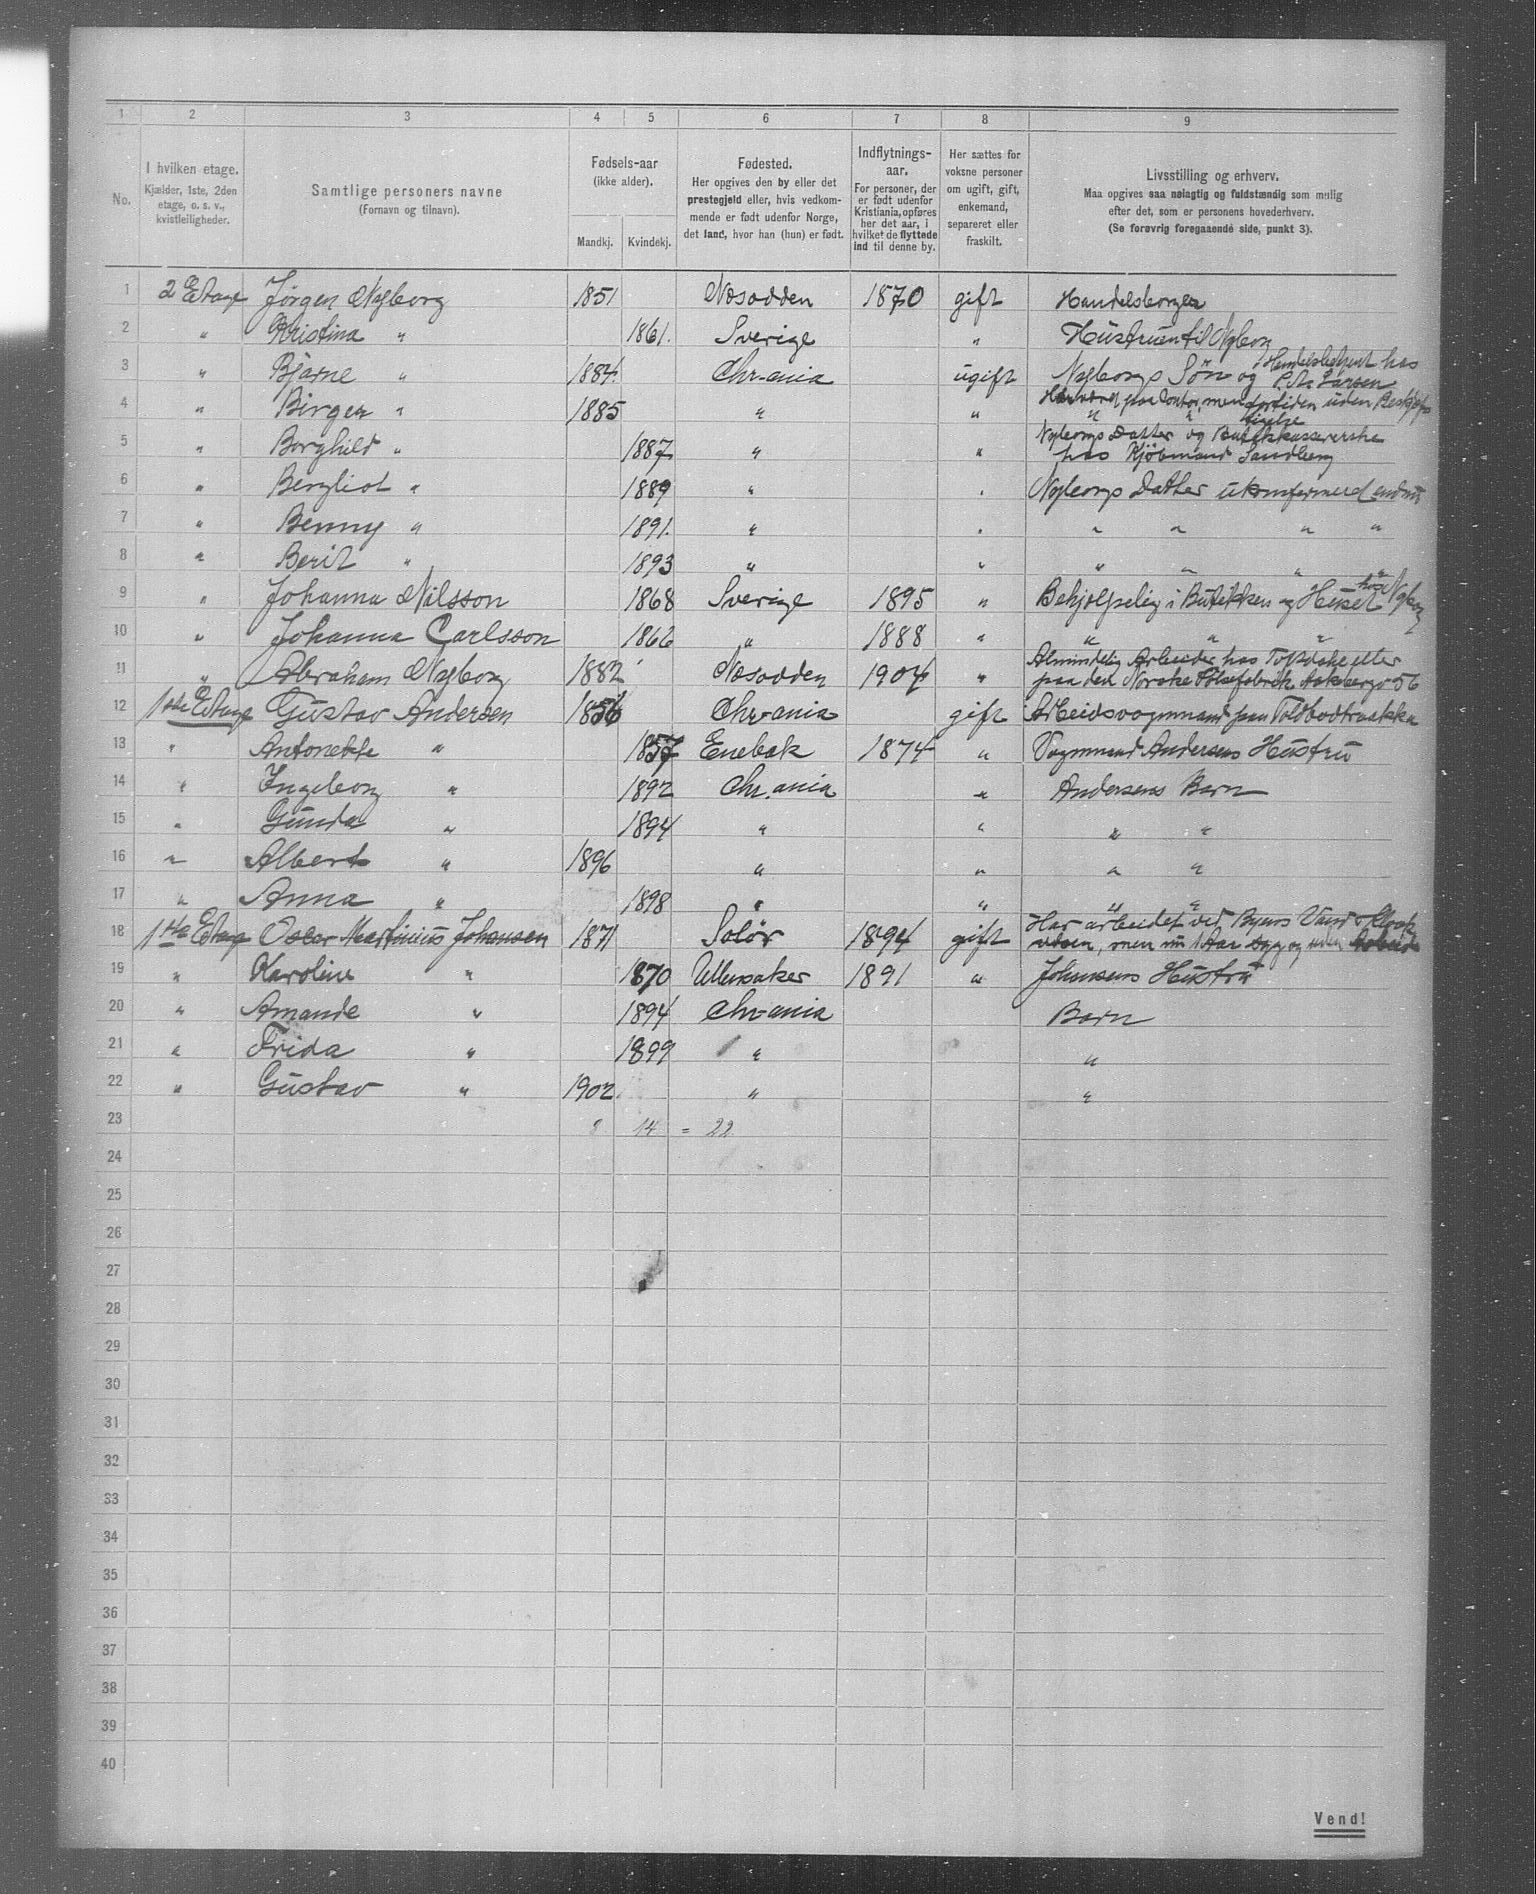 1 2 3 4 5 6 7 8 9
No.
I hvilken etage.
Kjælder, 1ste, 2den
etage, o. s. v.,
kvistleiligheder.
Samtlige personers navne
(Fornavn og tilnavn).
Fødsels-aar
(ikke alder).
Mandkj. Kvindekj.
Fødested.
Her opgives den by eller det
prestegjeld eller, hvis vedkom-
mende er født udenfor Norge,
det land, hvor han (hun) er født.
Indflytnings-
aar.
For personer, der
er født udenfor
Kristiania, opføres
her det aar, i
hvilket de flyttede
ind til denne by.
Her sættes for
voksne personer
om ugift, gift,
enkemand,
separeret eller
fraskilt.
Livsstilling og erhverv.
Maa opgives saa nøiagtig og fuldstændig som mulig
efter det, som er personens hovederhverv.
(Se forøvrig foregaaende side, punkt 3).
1 2 Etage Jørgen Nyborg 1851 Næsodden 1870 gift Handelsborger
2 " Kristina " 1861. Sverige " Hustruen til Nyborg
3 " Bjarne " 1884. Chr-ania ugift Nyborgs Søn og Handelsbetjent hos
P. A. Larsen
4 " Birger " 1885 " " Har været paa Contor, men for tiden uden Beskjæf
" " tigelse
5 " Borghild " 1887 " " Nyborgs Datter og Butikkassererske
hos Kjøbmand Sandberg
6 " Bergliot " 1889 " " Nyborgs Datter ukonfirmeret endnu
7 " Benny " 1891. " " " " " "
8 " Berit " 1893 " " " " " "
9 " Johanna Nilsson 1868 Sverige 1895 " Behjelpelig i Butikken og Huset hos Nyborg
10 " Johanna Carlsson 1866 " 1888 " " " "
11 " Abraham Nyborg 1882 Næsodden 1904 " Almindelig Arbeider hos
paa den Norske 56
12 1ste Etage Gustav Andersen 1856 Chr-ania gift Arbeidsvognmand paa Toldbodtrakka
13 " Antonette " 1857 Enebak 1874 " Vognmand Andersens Hustru
14 " Ingeborg " 1892 Chr.ania " Andersens Barn
15 " Gunda " 1894 " " " "
16 " Albert " 1896 " " " "
17 " Anna " 1898 " " " "
18 1ste Etage Oscar Martinius Johansen 1871 Solør 1894 gift Har arbeidet ved Byens Vand & Kloak
væsen, men nu 1 Aar syg og uden Arbeide
19 " Karoline " 1870 Ullensaker 1891 " Johansens Hustru
20 " Amande " 1894 Chr-ania Barn
21 " Frida " 1899 " "
22 " Gustav " 1902. " "
23 8 14 = 22
24
25
26
27
28
29
30
31
32
33
34
35
36
37
38
39
40
Vend!